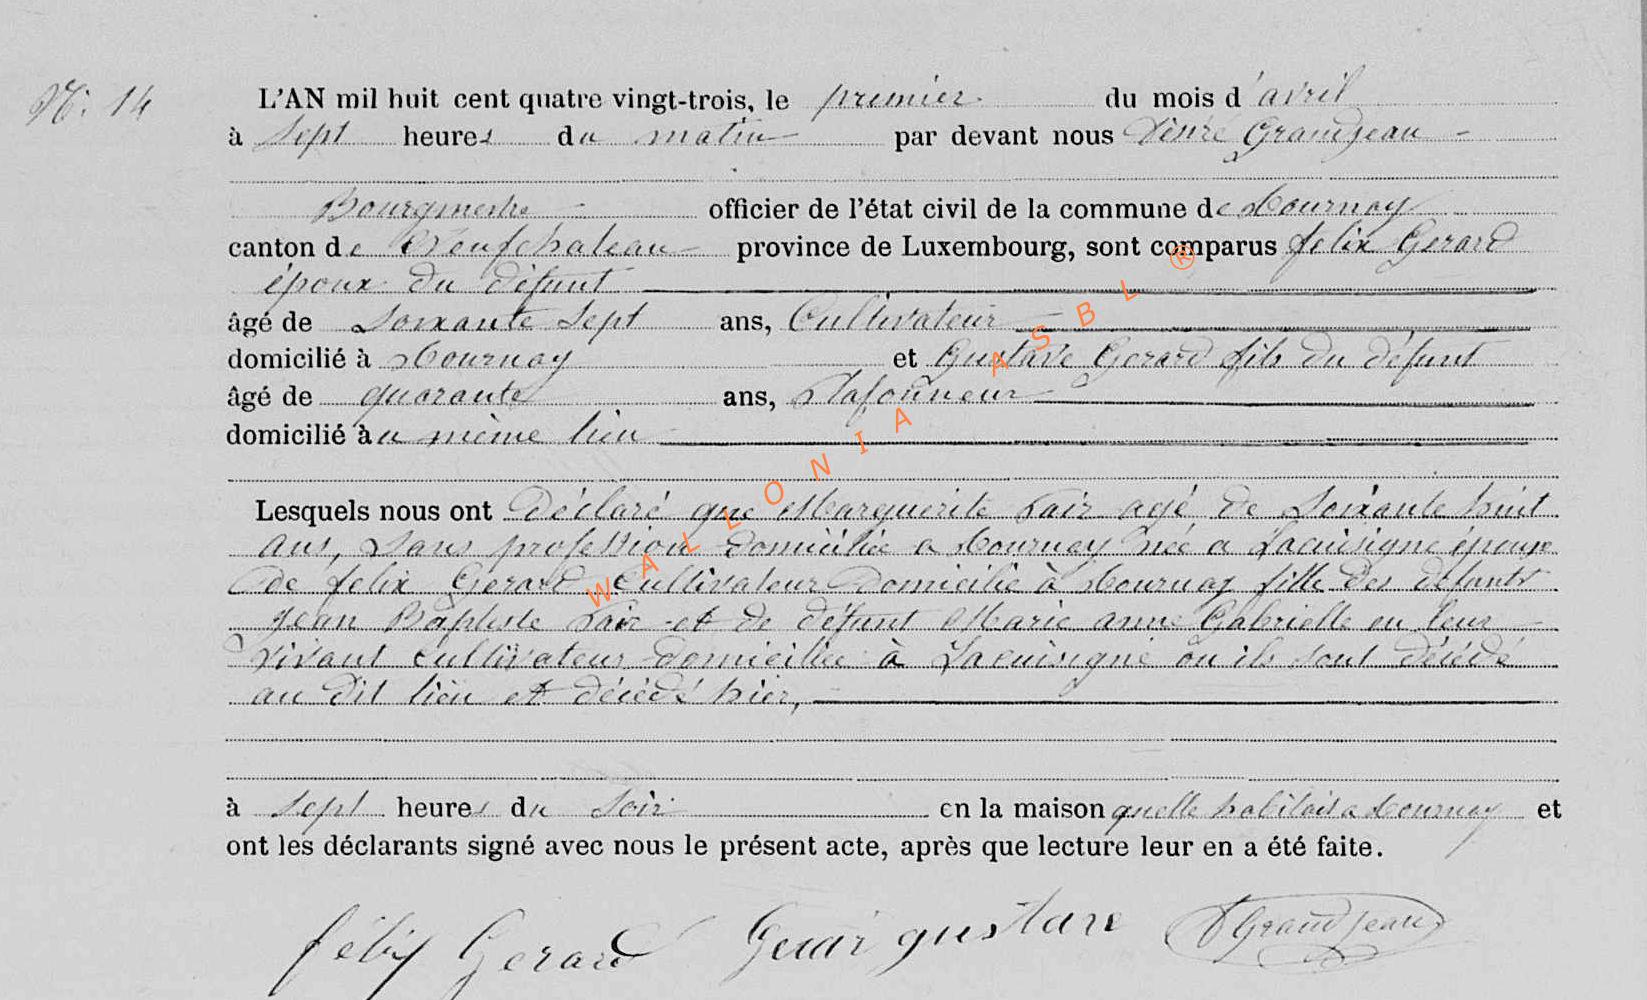 N°. 14
L'AN mil huit cent quatre vingt-trois, le premier du mois d'avril
à sept heures du matin par devant nous Désiré Grandjean
Bourgmestre officier de l'état civil de la commune de Tournay
canton de Neufchateau province de Luxembourg, sont comparus felix Gerard
époux du défunt
âgé de Soixante Sept ans, Cultivateur
domicilié à Tournay et Gustave Gerard fils du défunt
âgé de quarante ans, Plafonneur
domicilié au même lieu
Lesquels nous ont Déclaré que Marguerite agé de Soixante huit
ans, Sans profession domiciliée a Tournay née a Lacuisigne épouse
de felix Gerard Cultivateur Domicilié à Tournay fille des défunts
Jean Baptiste et de défunt Marie anne Gabrielle en leur
vivant cultivateur domiciliée à Lacuisigne ou ils sont décédé
au dit lieu et décédé hier,
à sept heures du Soir en la maison quelle habitait a Tournay et
ont les déclarants signé avec nous le présent acte, après que lecture leur en a été faite.
félix Gerard Gerar gustave DGrandjean
WALLONIA ASBL ®